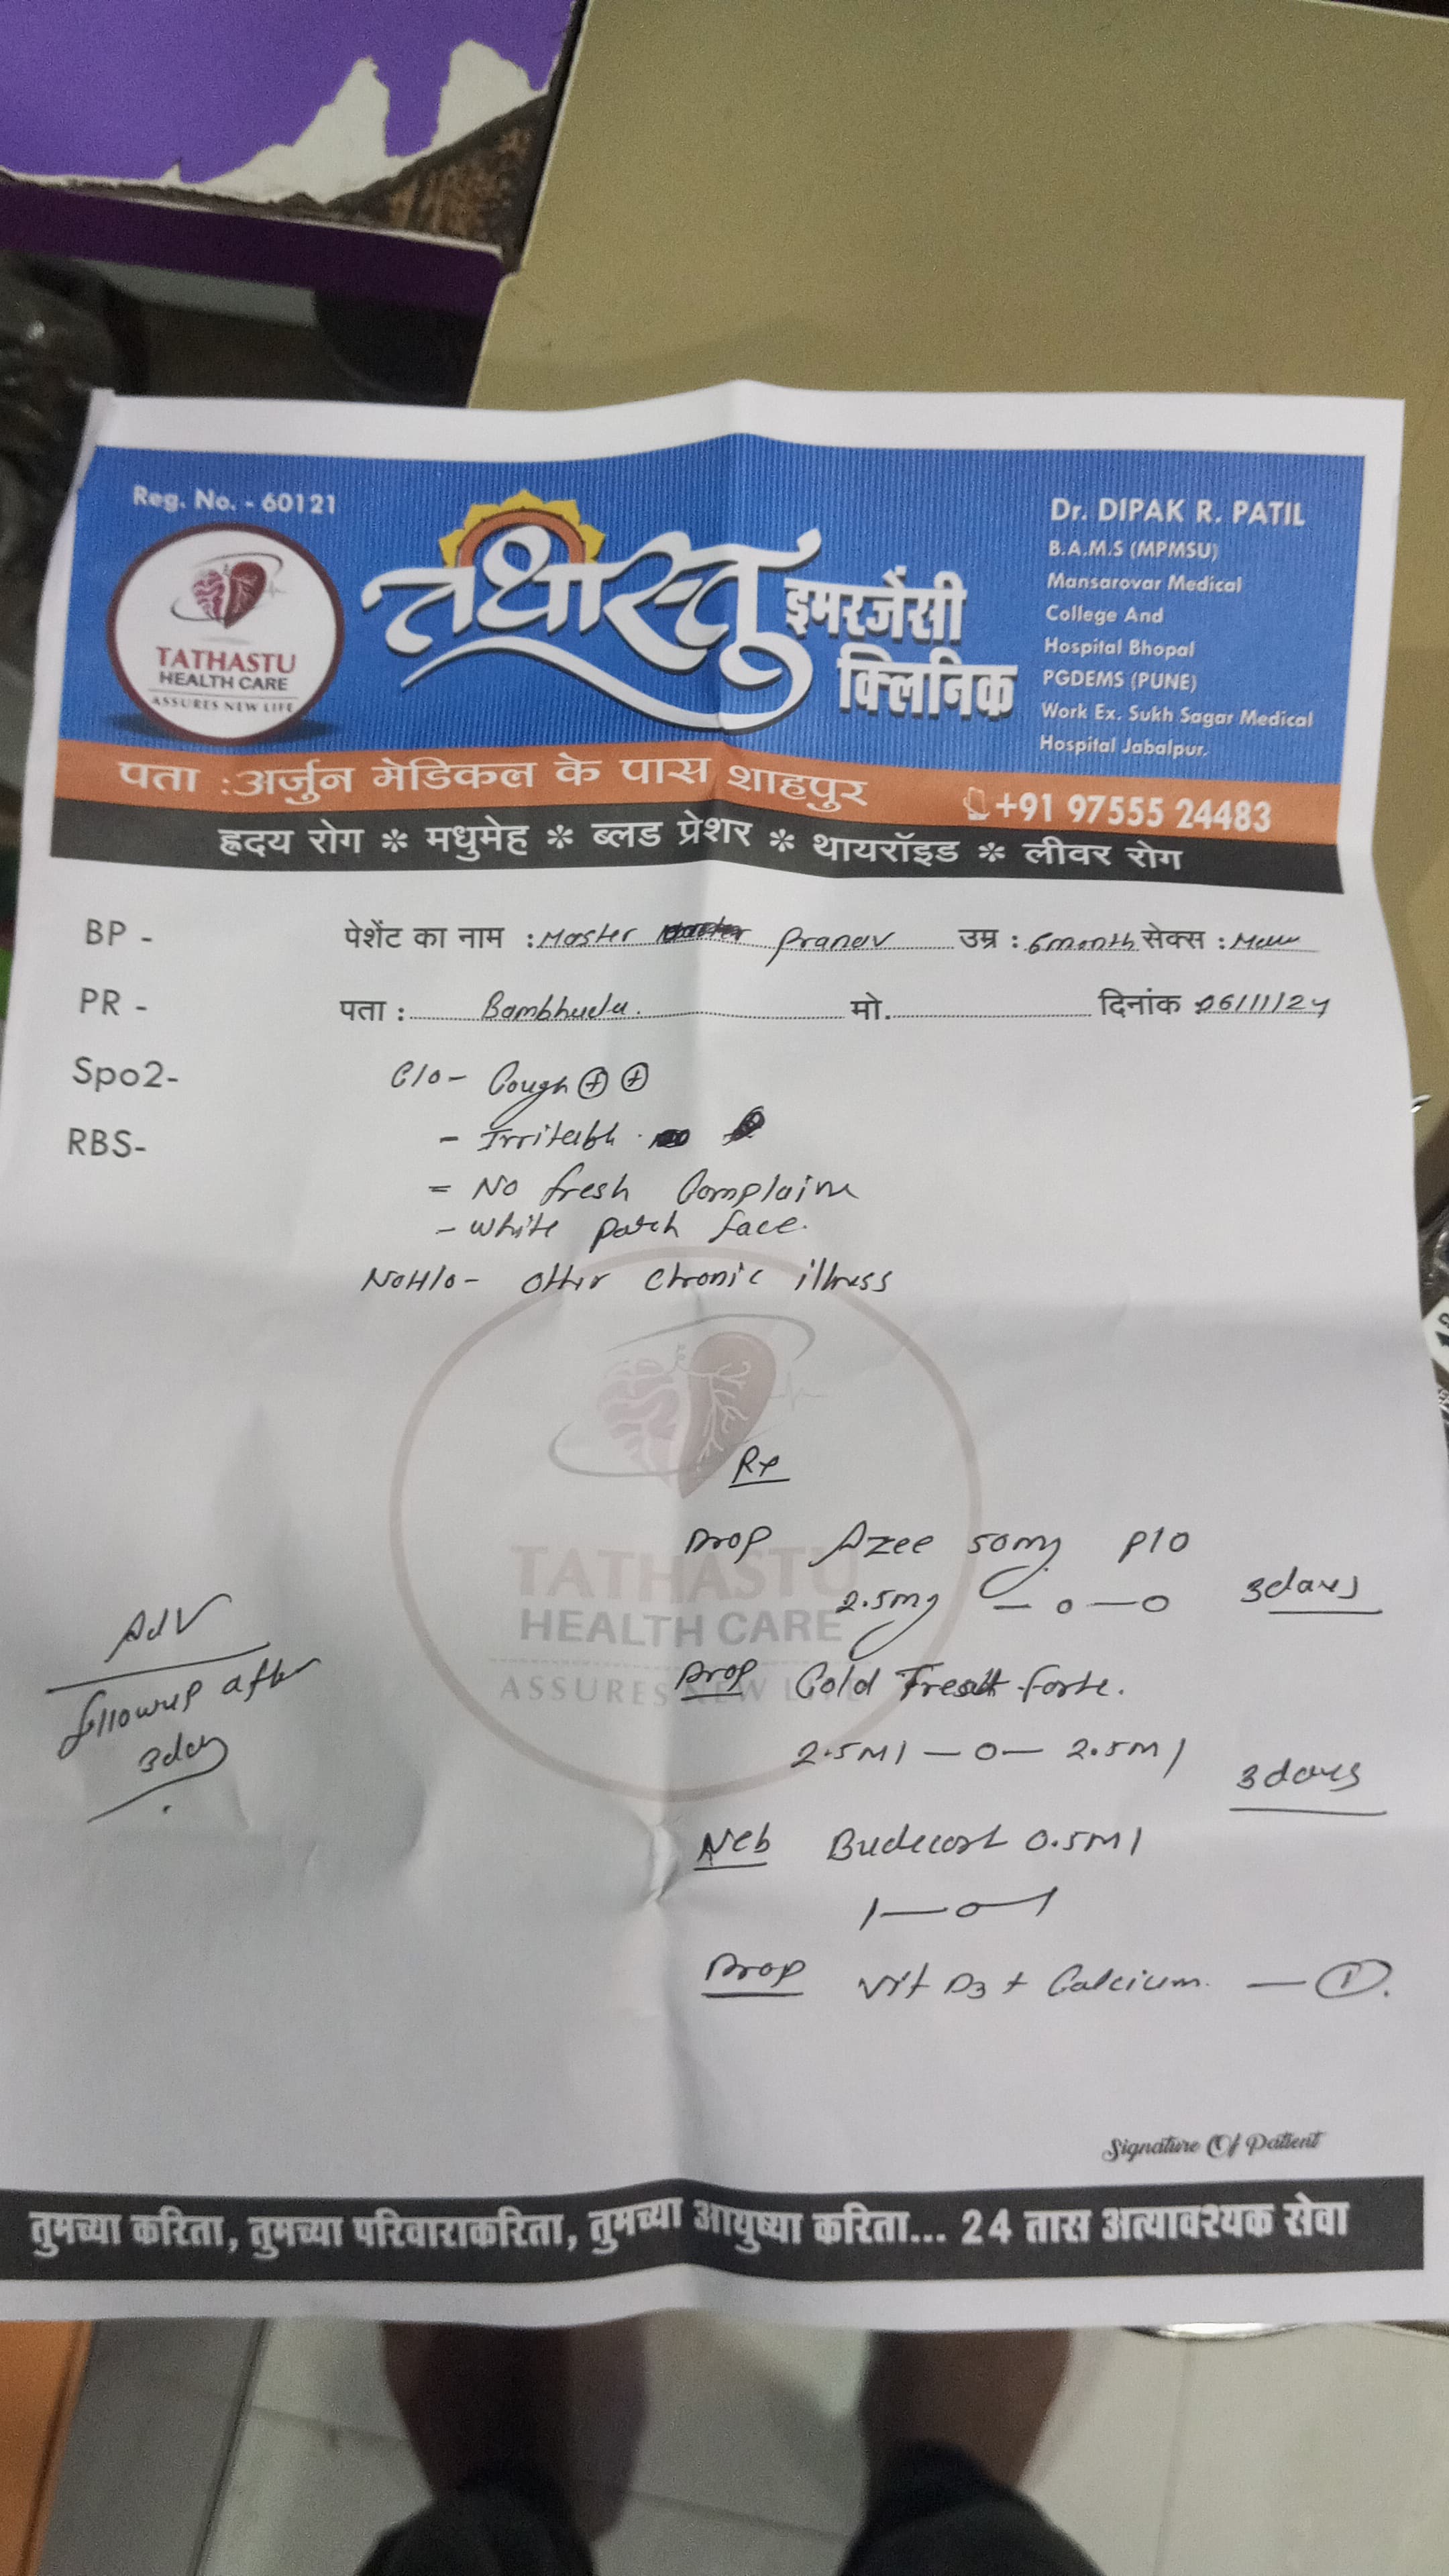 Reg. No. - 60121
TATHASTU
HEALTH CARE
ASSURES NEW LIFE
तथास्तु इमरजेंसी क्लिनिक
Dr. DIPAK R. PATIL
B.A.M.S (MPMSU)
Mansarovar Medical
College And
Hospital Bhopal
PGDEMS (PUNE)
Work Ex. Sukh Sagar Medical
Hospital Jabalpur.
पता :अर्जुन मेडिकल के पास शाहपुर
+91 97555 24483
ह्रदय रोग * मधुमेह * ब्लड प्रेशर * थायरॉइड * लीवर रोग
BP - पेशेंट का नाम : Master Pranav उम्र : 6 month सेक्स :
PR - पता : मो. दिनांक 06/11/24
Spo2- C/o - Cough ⊕ ⊕
RBS-
= No fresh
- White patch face.
NoH/o - other chronic illness
Rx
Drop Azee 50mg P/O
2.5mg — o — o 3days
Drop Cold forte.
2.5Ml — o — 2.5Ml 3days
Neb Budecort 0.5Ml
1 — o — 1
Drop Vit D3 + Calcium. — ①.
Adv
followup after
3day
TATHASTU
HEALTH CARE
ASSURES NEW LIFE
Signature Of Patient
तुमच्या करिता, तुमच्या परिवाराकरिता, तुमच्या आयुष्या करिता... 24 तास अत्यावश्यक सेवा